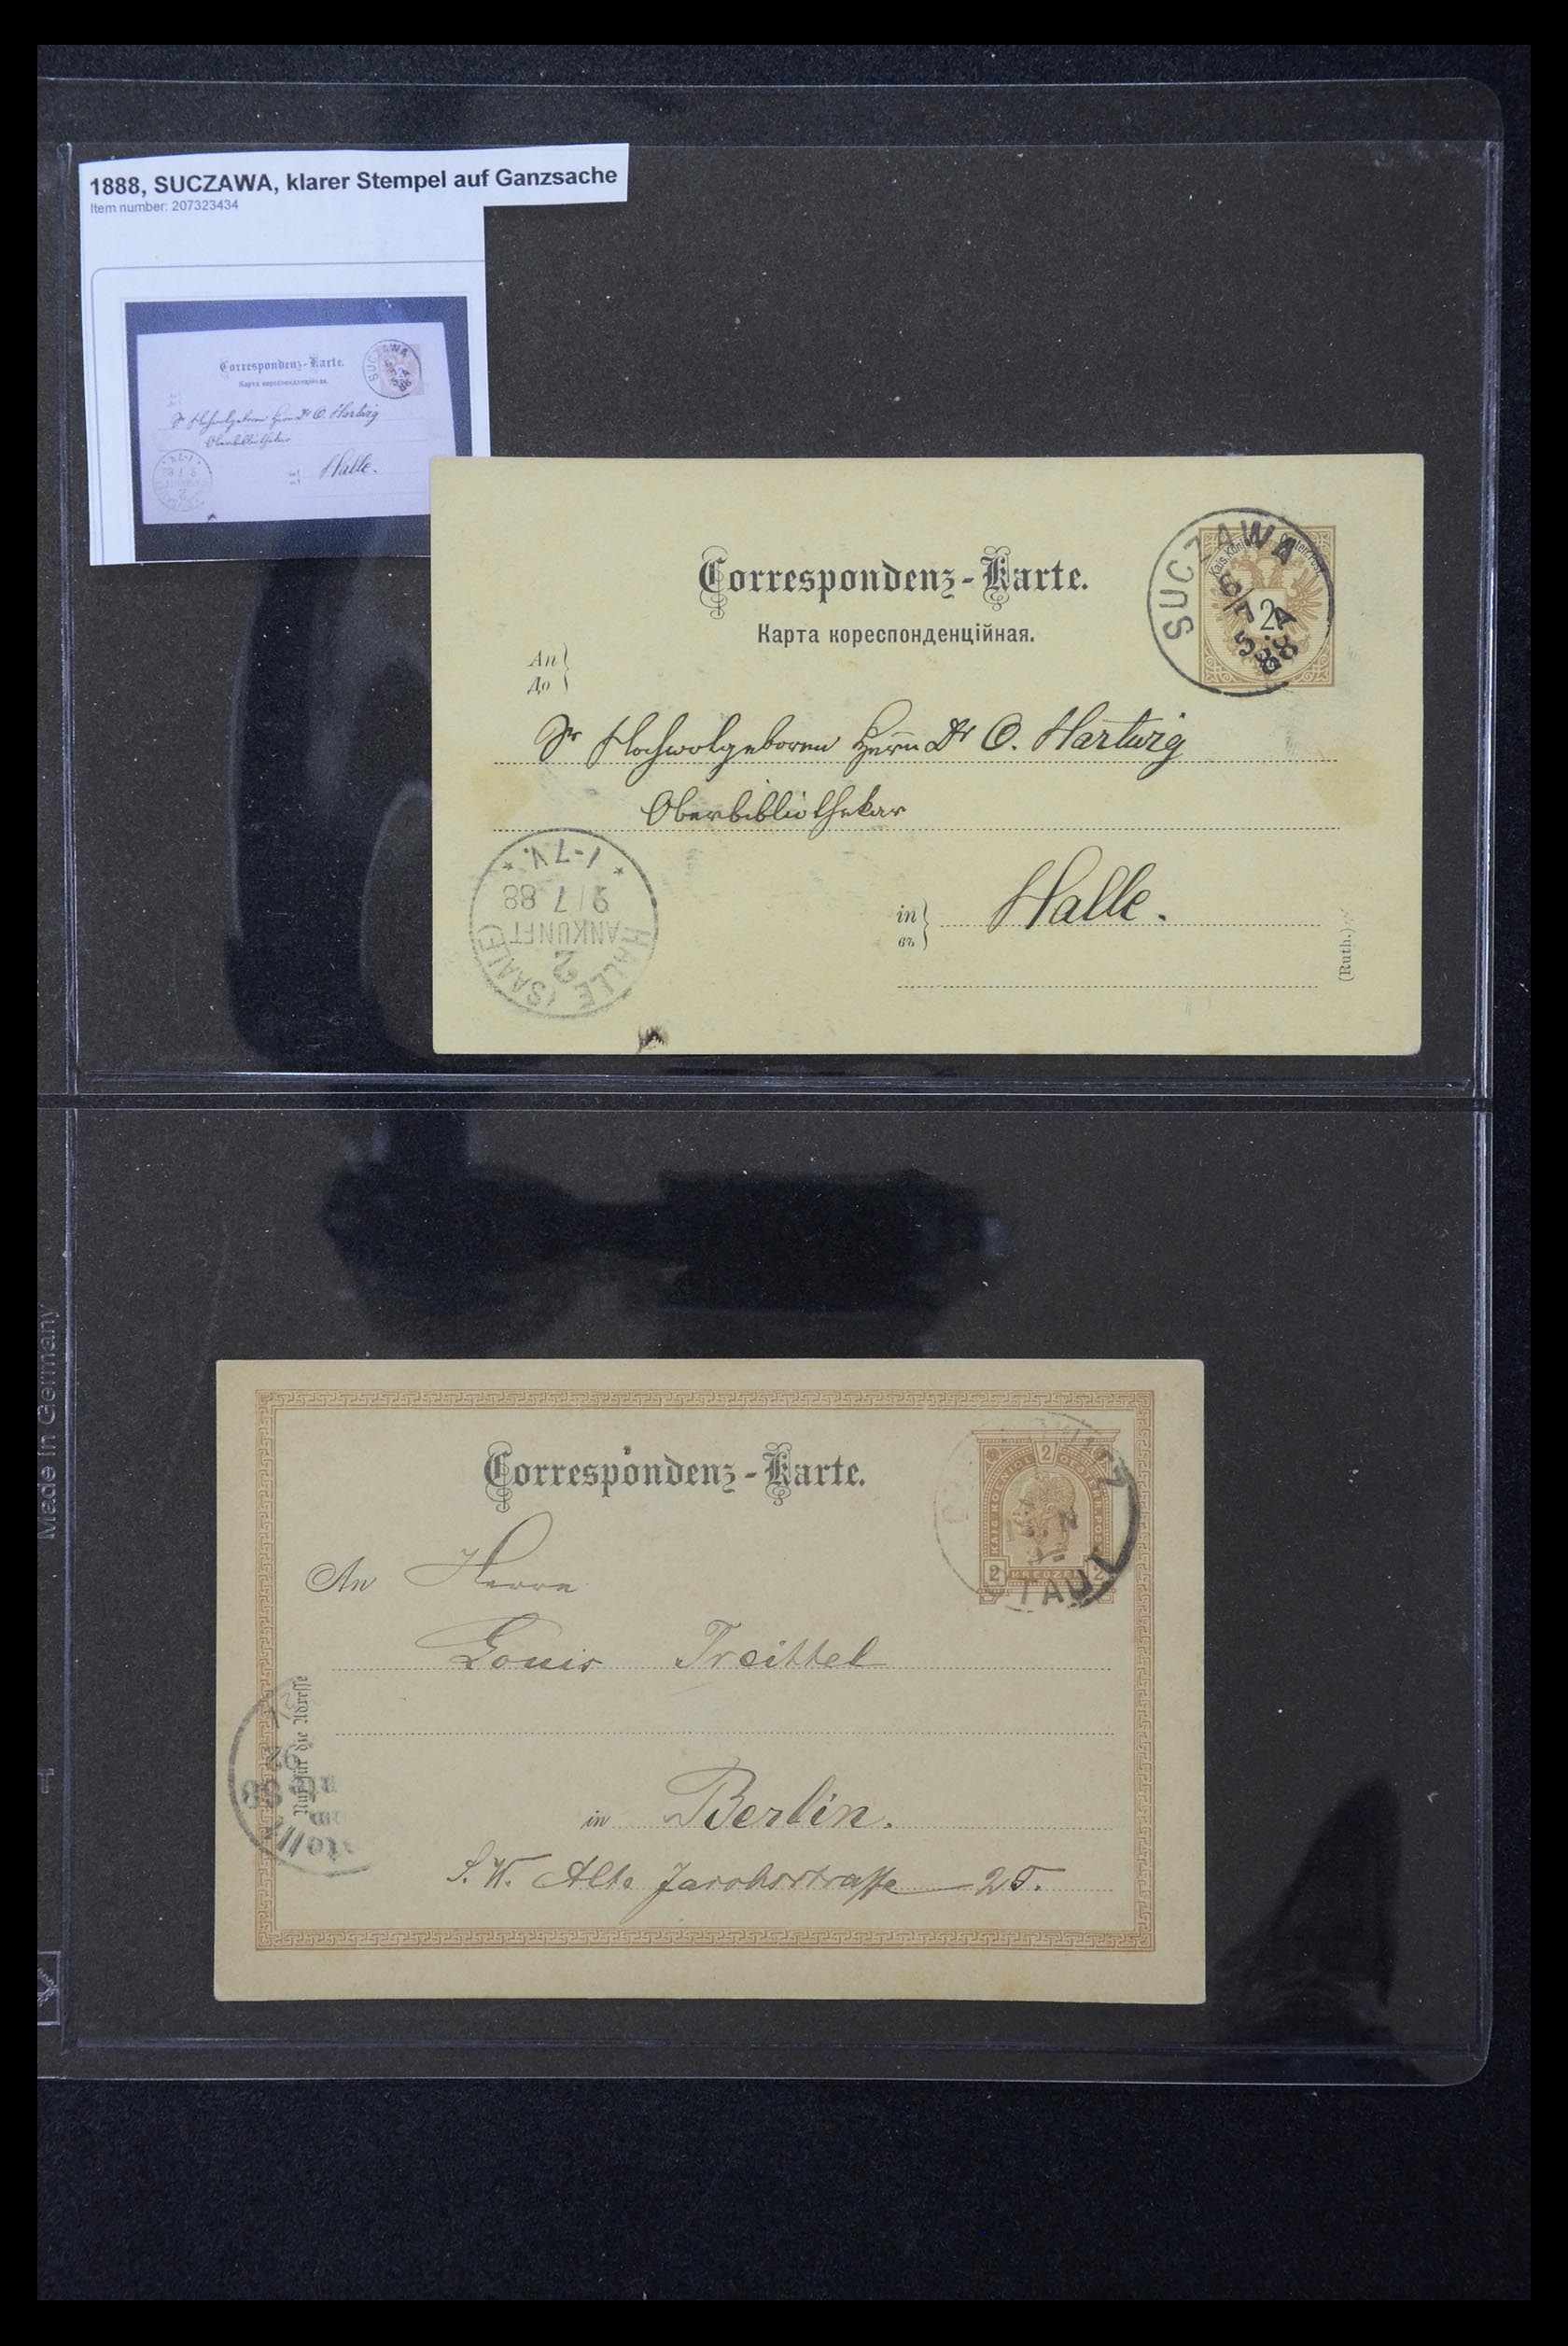 1888, SUCZAWA, klarer Stempel auf Ganzsache
Item number: 207323434
Correspondenz-Karte.
Карта кореспонденційная.
Sr Hochwolgeboren Herrn Dr O. Hartwig
Oberbibliothekar
Halle.
SUCZAWA
Correspondenz-Karte.
Карта кореспонденційная.
SUCZAWA
6/7
5.A
88
2
An
До
Sr Hochwolgeboren Herrn Dr O. Hartwig
Oberbibliothekar
in Halle.
въ
(Ruth.)
HALLE (SAALE)
2
ANKUNFT
9/7 88
* 1-7 V. *
Made in Germany
Correspondenz-Karte.
2
KAIS. KOENIGL. OESTERR. POST
2 KREUZER 2
An Herrn
Louis Treittel
in Berlin.
S.W. Alte Jacobsstrasse 25.
Nur für die Adresse